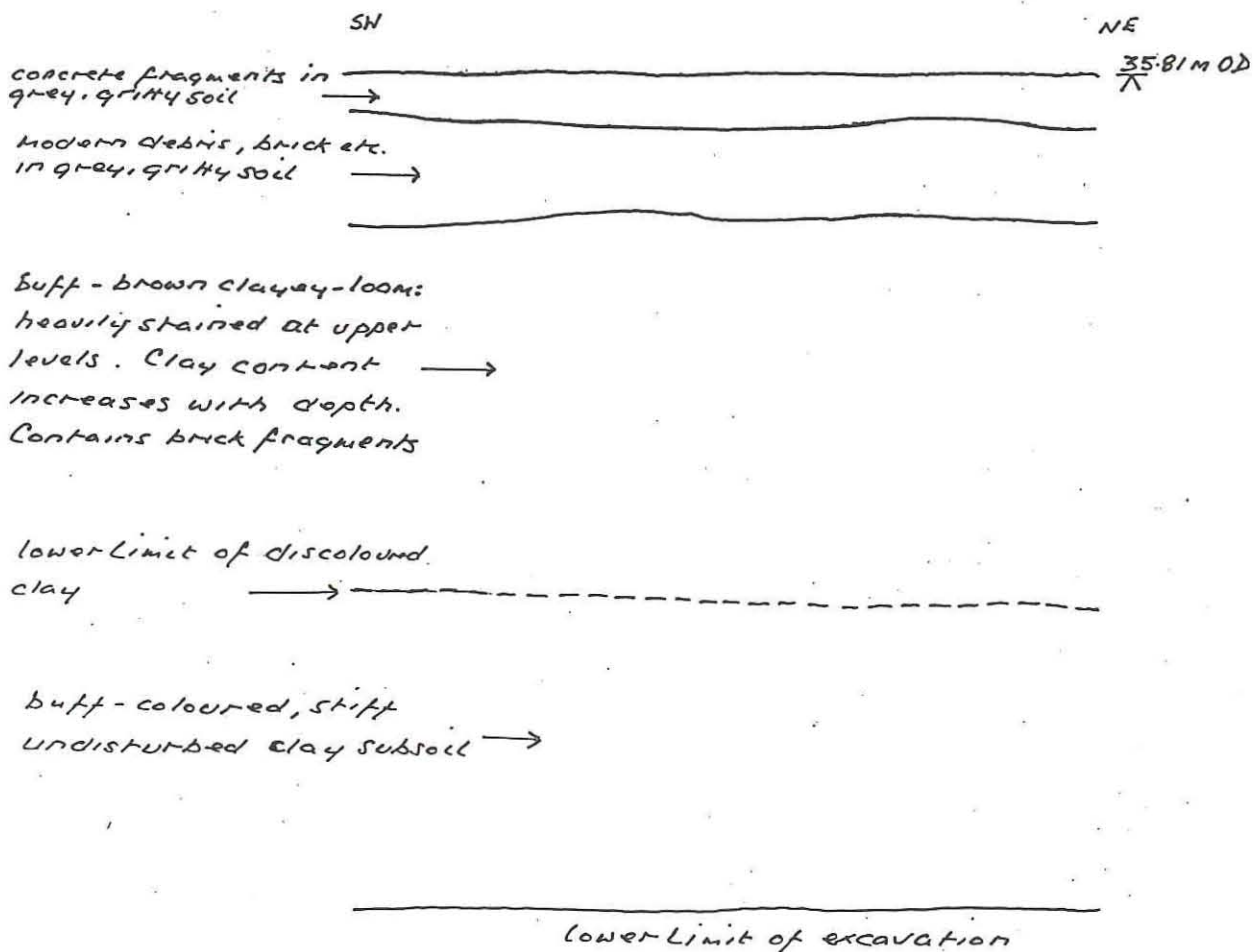 SW
NE
35.81 m OD
concrete fragments in
grey, gritty soil
Modern debris, brick etc.
in grey, gritty soil
Buff-brown clayey-loam:
heavily stained at upper
levels. Clay content
increases with depth.
Contains brick fragments
lower Limit of discoloured
clay
buff-coloured, stiff
undisturbed clay subsoil
lower Limit of excavation